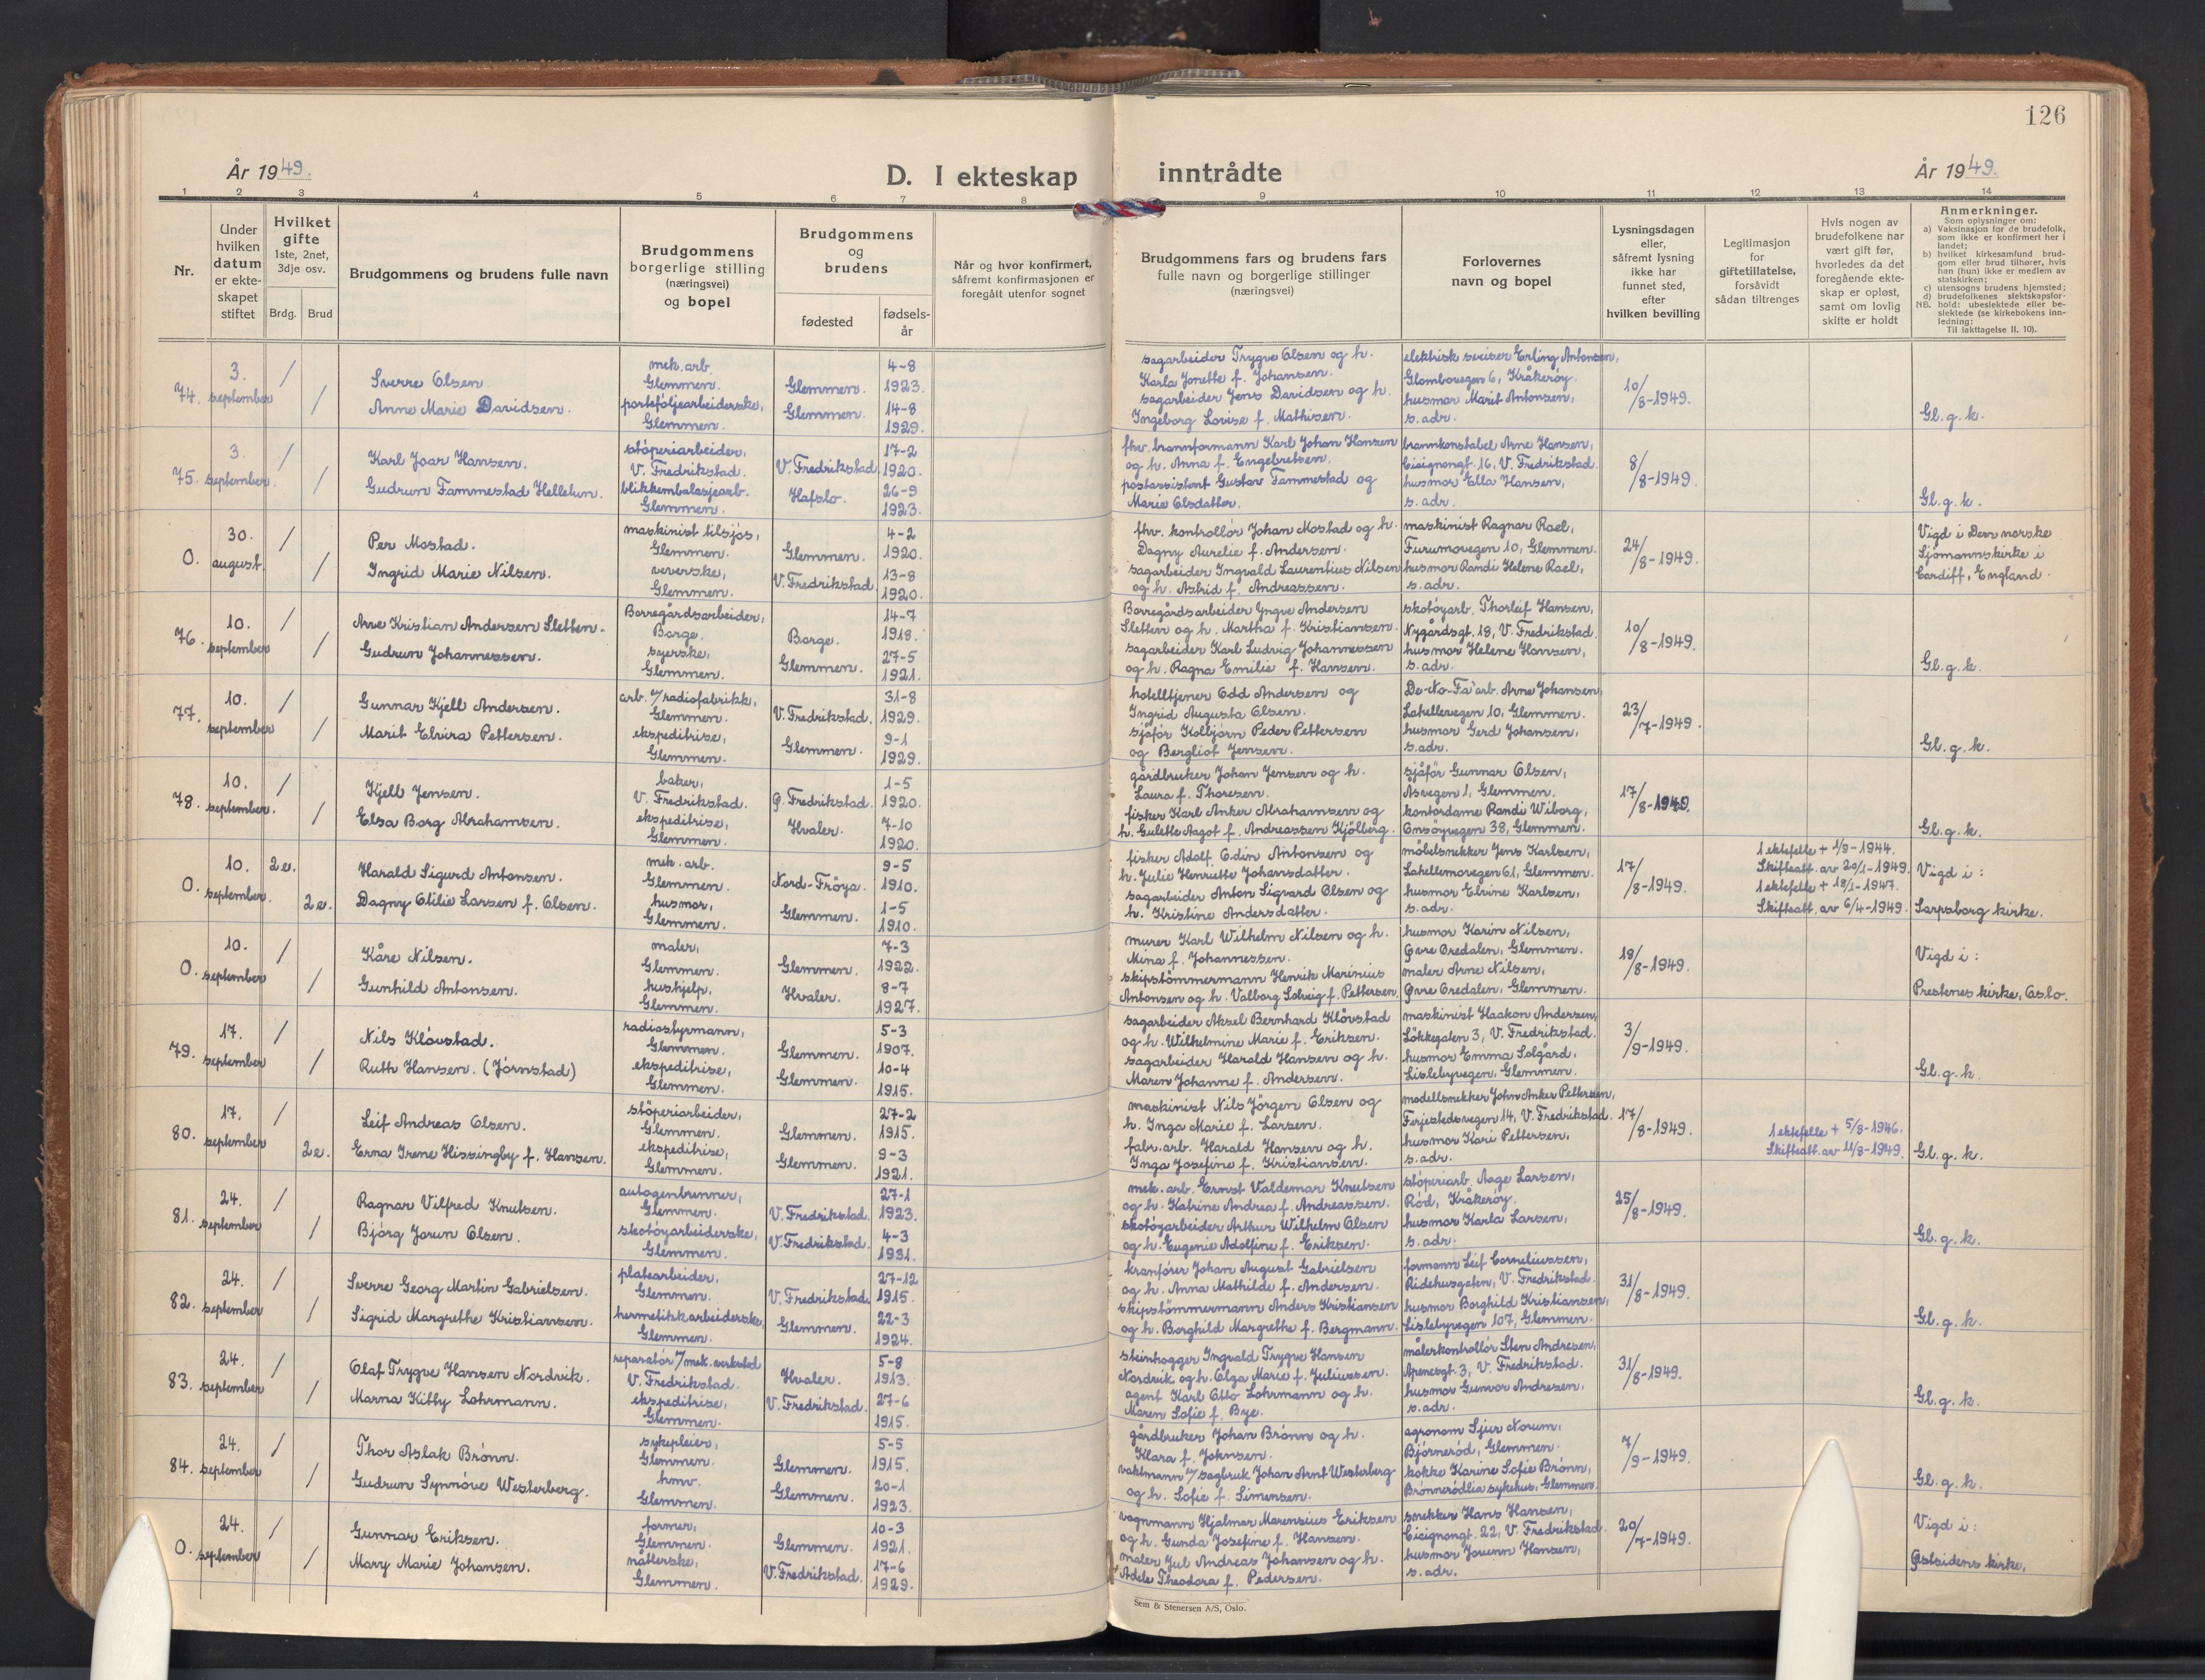 126
År 1949.
D. I ekteskap inntrådte
År 1949.
1 2 3 4 5 6 7 8 9 10 11 12 13 14
Nr.
Under hvilken datum er ekteskapet stiftet
Hvilket gifte 1ste, 2net, 3dje osv.
Brdg. Brud
Brudgommens og brudens fulle navn
Brudgommens borgerlige stilling (næringsvei) og bopel
Brudgommens og brudens
fødested
fødsels-år
Når og hvor konfirmert, såfremt konfirmasjonen er foregått utenfor sognet
Brudgommens fars og brudens fars fulle navn og borgerlige stillinger (næringsvei)
Forlovernes navn og bopel
Lysningsdagen eller, såfremt lysning ikke har funnet sted, efter hvilken bevilling
Legitimasjon for giftetillatelse, forsåvidt sådan tiltrenges
Hvis nogen av brudefolkene har vært gift før, hvorledes da det foregående ekteskap er opløst, samt om lovlig skifte er holdt
Anmerkninger.
Som oplysninger om:
a) Vaksinasjon for de brudefolk, som ikke er konfirmert her i landet;
b) hvilket kirkesamfund brudgom eller brud tilhører, hvis han (hun) ikke er medlem av statskirken;
c) utensogns brudens hjemsted;
d) brudefolkenes slektskapsforhold: ubeslektede eller beslektede (se kirkebokens innledning:
NB. Til iakttagelse II. 10).
74. 3. september / /
Sverre Olsen.
Anne Marie Davidsen.
mek. arb.
Glemmen.
porteføljearbeiderske,
Glemmen.
Glemmen.
Glemmen.
4-8
1923.
14-8
1929.
sagarbeider Trygve Olsen og h.
Karla Jonette f. Johansen.
sagarbeider Jens Davidsen og h.
Ingeborg Lovise f. Mathisen.
elektrisk sveiser Erling Antonsen,
Glombovegen 6, Kråkerøy.
husmor Marit Antonsen,
s. adr.
10/8-1949.
Gl. g. k.
75. 3. september. / /
Karl Joar Hansen.
Gudrun Fammestad Hellelum.
støperiarbeider,
V. Fredrikstad.
blikkembalasjearb.
Glemmen.
V. Fredrikstad.
Hafslo.
17-2
1920.
26-9
1923.
fhv. brannformann Karl Johan Hansen
og h. Anna f. Engebretsen.
postassistent Gustav Fammestad og
Marie Olsdatter.
brannkonstabel Arne Hansen,
Cicignongt. 16, V. Fredrikstad.
husmor Ella Hansen,
s. adr.
8/8-1949.
Gl. g. k.
0. 30. august. / /
Per Mostad.
Ingrid Marie Nilsen.
maskinist tilsjøs,
Glemmen.
veverske,
Glemmen.
Glemmen.
V. Fredrikstad.
4-2
1920.
13-8
1920.
fhv. kontrollør Johan Mostad og h.
Dagny Aurelie f. Andersen.
sagarbeider Ingvald Laurentius Nilsen
og h. Astrid f. Andreassen.
maskinist Ragnar Roel,
Furumovegen 10, Glemmen.
husmor Randi Helene Roel,
s. adr.
24/8-1949.
Vigd i Den norske
Sjømannskirke i
Cardiff, England.
76. 10. september / /
Arne Kristian Andersen Sletten.
Gudrun Johannessen.
Borregårdsarbeider,
Borge.
syerske,
Glemmen.
Borge.
Glemmen.
14-7
1918.
27-5
1921.
Borregårdsarbeider Yngve Andersen
Sletten og h. Martha f. Kristiansen.
sagarbeider Karl Ludvig Johannessen
og h. Ragna Emilie f. Hansen.
skotøyarb. Thorleif Hansen,
Nygårdsgt. 18, V. Fredrikstad.
husmor Helene Hansen,
s. adr.
10/8-1949.
Gl. g. k.
77. 10. september / /
Gunnar Kjell Andersen.
Marit Elvira Pettersen.
arb. v/radiofabrikk,
Glemmen.
ekspeditrise,
Glemmen.
V. Fredrikstad.
Glemmen.
31-8
1929.
9-1
1929.
hotelltjener Odd Andersen og
Ingrid Augusta Olsen.
sjåfør Kolbjørn Peder Pettersen
og Bergliot Jensen.
De-No-Fa arb. Arne Johansen,
Lahellevegen 10, Glemmen.
husmor Gerd Johansen,
s. adr.
23/7-1949.
Gl. g. k.
78. 10. september. / /
Kjell Jensen.
Elsa Borg Abrahamsen.
baker,
V. Fredrikstad.
ekspeditrise,
Glemmen.
Ø. Fredrikstad.
Hvaler.
1-5
1920.
7-10
1920.
gårdbruker Johan Jensen og h.
Laura f. Thoresen.
fisker Karl Anker Abrahamsen og
h. Gulette Aagot f. Andreassen Kjölberg.
sjåfør Gunnar Olsen,
Åsvegen 1, Glemmen.
kontordame Randi Wiborg,
Onsøyvegen 38, Glemmen.
17/8-1949
Gl. g. k.
0. 10. september. 2e. 2e.
Harald Sigurd Antonsen.
Dagny Otilie Larsen f. Olsen.
mek. arb.
Glemmen.
husmor,
Glemmen.
Nord-Frøya.
Glemmen.
9-5
1910.
1-5
1910.
fisker Adolf Odin Antonsen og
h. Julie Henriette Johansdatter.
sagarbeider Anton Sigvard Olsen og
h. Kristine Andersdatter.
møbelsnekker Jens Karlsen,
Lahellemovegen 61, Glemmen.
husmor Elvine Karlsen,
s. adr.
17/8-1949.
1 ektefelle + 1/9-1944.
Skifteatt. av 20/1-1949.
1 ektefelle + 18/1-1947.
Skifteatt. av 6/4-1949.
Vigd i:
Sarpsborg kirke.
0. 10. september / /
Kåre Nilsen.
Gunhild Antonsen.
maler,
Glemmen.
hushjelp,
Glemmen.
Glemmen.
Hvaler.
7-3
1922.
8-7
1927.
murer Karl Wilhelm Nilsen og h.
Mina f. Johannessen.
skipstømmermann Henrik Marinius
Antonsen og h. Valborg Solveig f. Pettersen.
husmor Karin Nilsen,
Øvre Oredalen, Glemmen.
maler Arne Nilsen,
Øvre Oredalen, Glemmen.
18/8-1949.
Vigd i:
Prestenes kirke, Oslo.
79. 17. september / /
Nils Kløvstad.
Ruth Hansen. (Jørnstad)
radiostyrmann,
Glemmen.
ekspeditrise,
Glemmen.
Glemmen.
Glemmen.
5-3
1907.
10-4
1915.
sagarbeider Aksel Bernhard Kløvstad
og h. Wilhelmine Marie f. Eriksen.
sagarbeider Harald Hansen og h.
Maren Johanne f. Andersen.
maskinist Haakon Andersen,
Løkkegaten 3, V. Fredrikstad.
husmor Emma Solgård,
Lislebyvegen, Glemmen.
3/9-1949.
Gl. g. k.
80. 17. september / 2e.
Leif Andreas Olsen.
Erna Irene Hissingby f. Hansen.
støperiarbeider,
Glemmen.
ekspeditrise,
Glemmen.
Glemmen.
Glemmen.
27-2
1915.
9-3
1921.
maskinist Nils Jørgen Olsen og
h. Inga Marie f. Larsen.
fabr. arb. Harald Hansen og h.
Inga Josefine f. Kristiansen.
modellsnekker John Anker Pettersen,
Ferjestedsvegen 14, V. Fredrikstad.
husmor Kari Pettersen,
s. adr.
17/8-1949.
1 ektefelle + 5/8-1946.
Skifteatt. av 11/8-1949.
Gl. g. k.
81. 24. september / /
Ragnar Vilfred Knutsen.
Bjørg Jorun Olsen.
autogenbrenner,
Glemmen.
skotøyarbeiderske,
Glemmen.
V. Fredrikstad.
V. Fredrikstad.
27-1
1923.
4-3
1931.
mek. arb. Ernst Valdemar Knutsen
og h. Katrine Andrea f. Andreassen.
skotøyarbeider Arthur Wilhelm Olsen
og h. Eugenie Adolfine f. Eriksen.
støperiarb. Aage Larsen,
Rød, Kråkerøy.
husmor Karla Larsen,
s. adr.
25/8-1949.
Gl. g. k.
82. 24. september / /
Sverre Georg Martin Gabrielsen.
Sigrid Margrethe Kristiansen.
platearbeider,
Glemmen.
hermetikkarbeiderske,
Glemmen.
V. Fredrikstad.
Glemmen.
27-12
1915.
22-3
1924.
kranfører Johan August Gabrielsen
og h. Anna Mathilde f. Andersen.
skipstømmermann Anders Kristiansen
og h. Borghild Margrethe f. Bergmann.
formann Leif Corneliussen,
Ridehusgaten, V. Fredrikstad.
husmor Borghild Kristiansen,
Lislebyvegen 107, Glemmen.
31/8-1949.
Gl. g. k.
83. 24. september / /
Olaf Trygve Hansen Nordvik.
Marna Kitty Lohrmann.
reparatør v/mek. verkstad
V. Fredrikstad.
ekspeditrise,
Glemmen.
Hvaler.
V. Fredrikstad.
5-8
1913.
27-6
1915.
steinhogger Ingvald Trygve Hansen
Nordvik og h. Olga Marie f. Juliussen.
agent Karl Otto Lohrmann og h.
Maren Sofie f. Bye.
målerkontrollør Sten Andresen,
Apenesgt. 3, V. Fredrikstad.
husmor Gunvor Andresen,
s. adr.
31/8-1949.
Gl. g. k.
84. 24. september / /
Thor Aslak Brønn.
Gudrun Synnøve Westerberg.
sykepleier,
Glemmen.
hmv.
Glemmen.
Glemmen.
Glemmen.
5-5
1915.
20-1
1923.
gårdbruker Johan Brønn og h.
Klara f. Johnsen.
vaktmann v/sagbruk Johan Arnt Westerberg
og h. Sofie f. Simensen.
agronom Sjur Norum,
Bjørnerød, Glemmen.
kokke Karine Sofie Brønn,
Brønnerødlia sykehus, Glemmen.
7/9-1949.
Gl. g. k.
0. 24. september / /
Gunnar Eriksen.
Mary Marie Johansen.
former,
Glemmen.
nåtlerske,
Glemmen.
Glemmen.
V. Fredrikstad.
10-3
1921.
17-6
1929.
vognmann Hjalmar Marensius Eriksen
og h. Gunda Josefine f. Hansen.
maler Jul Andreas Johansen og h.
Adele Theodora f. Pedersen.
snekker Hans Hansen,
Cicignongt. 22, V. Fredrikstad.
husmor Jorunn Hansen,
s. adr.
20/7-1949.
Vigd i:
Østsidens kirke.
Sem & Stenersen A/S, Oslo.